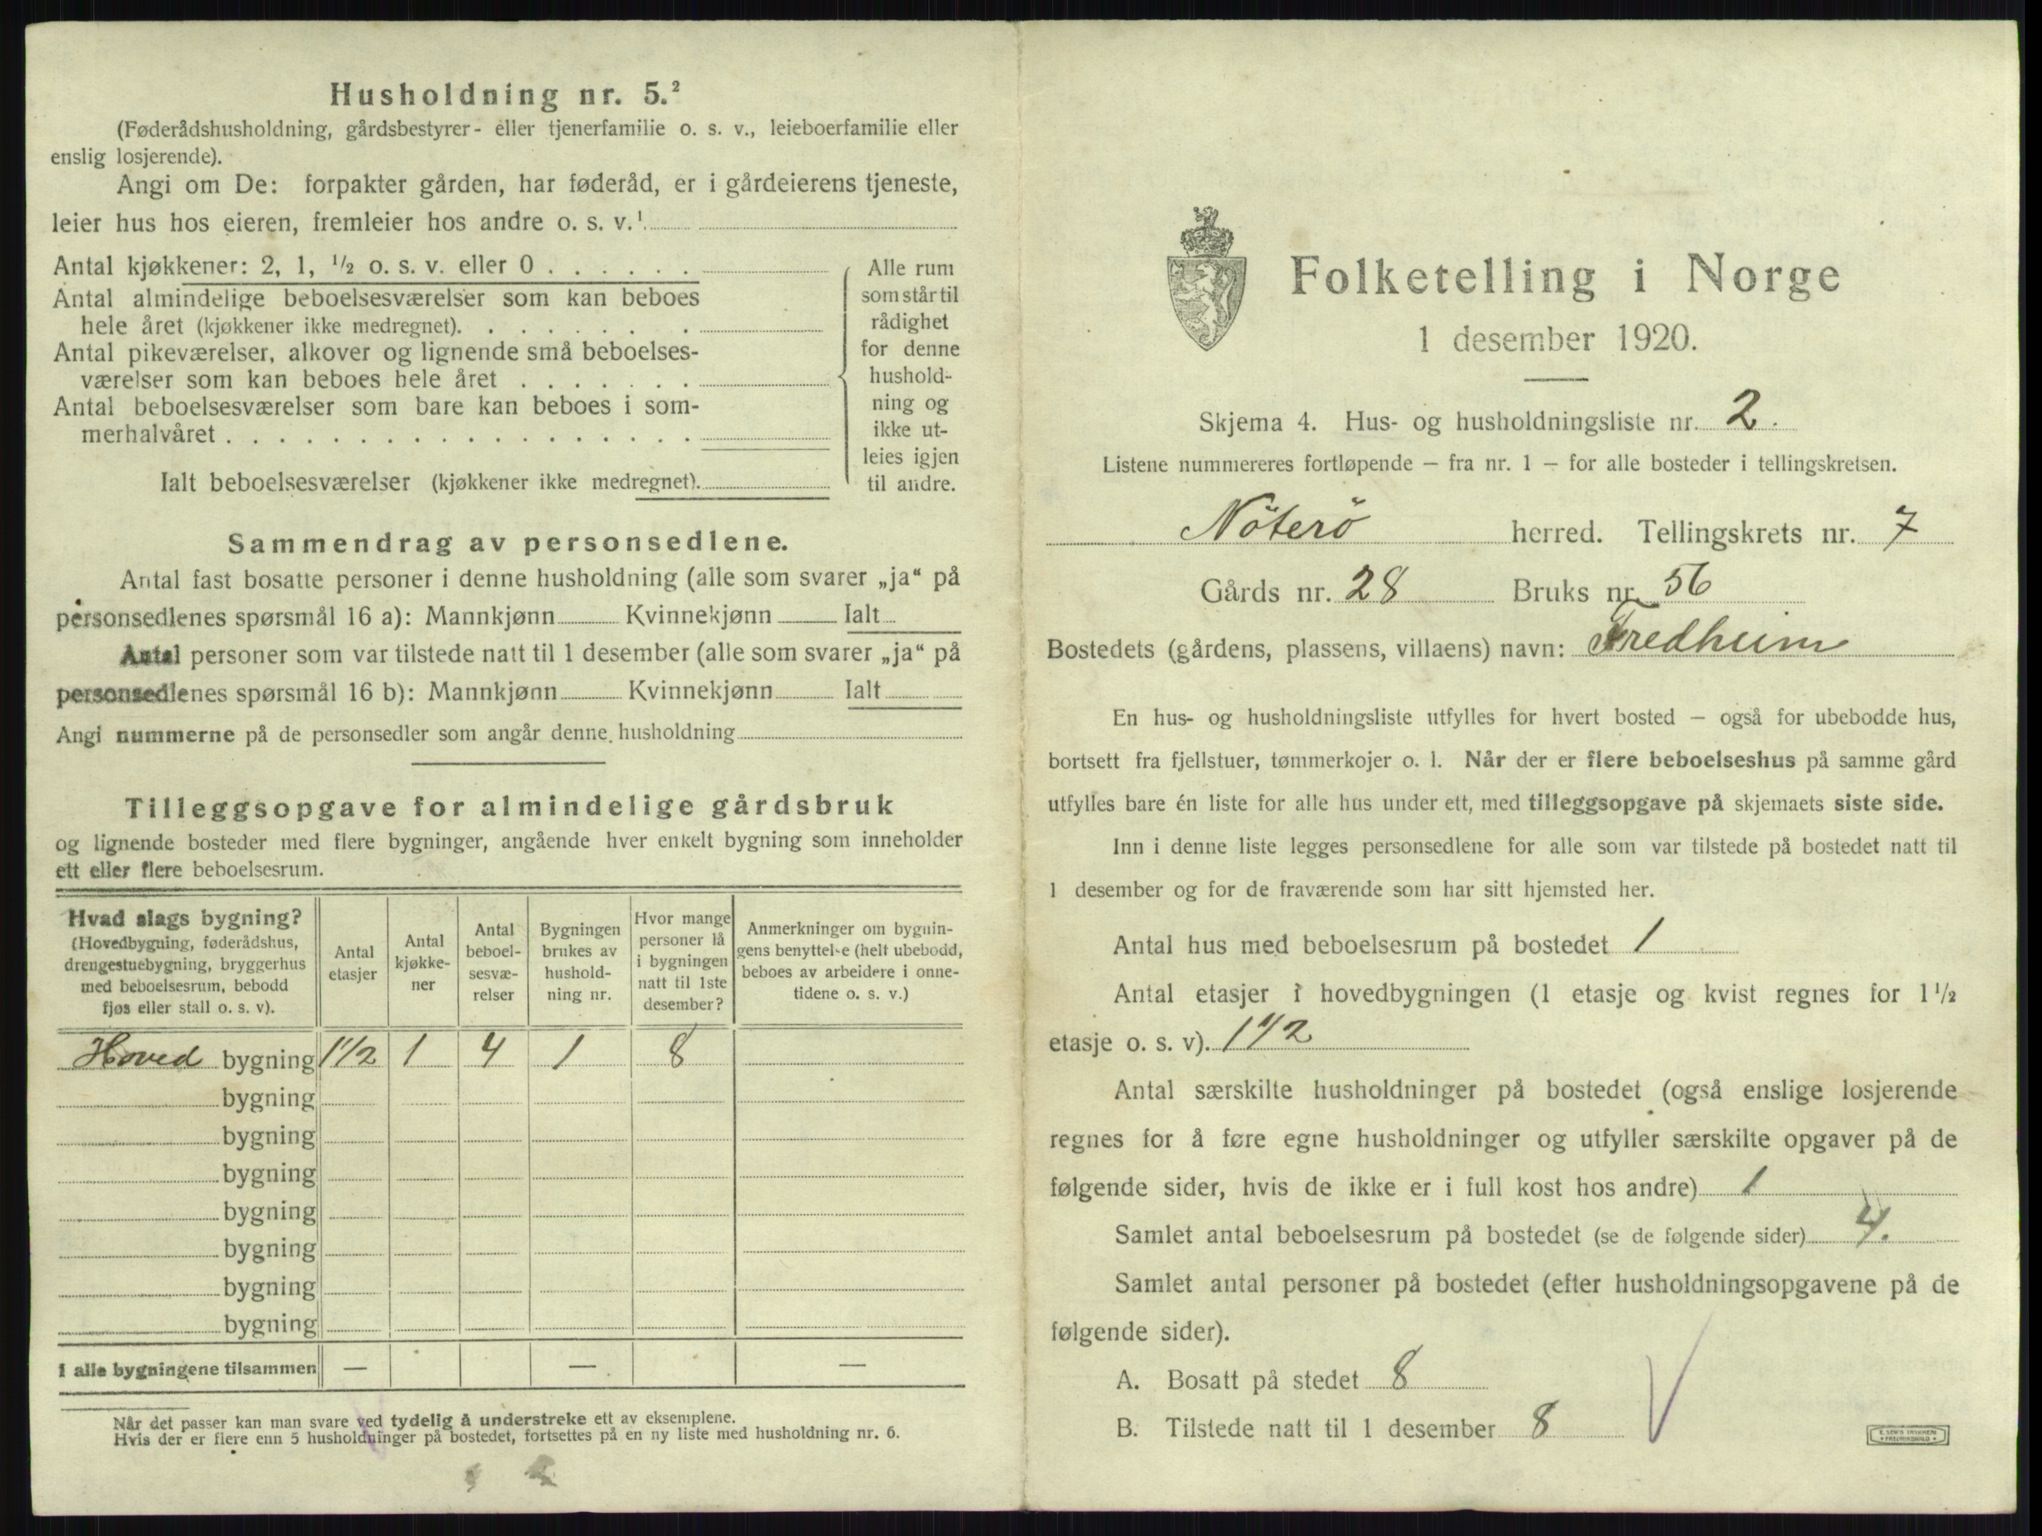 Husholdning nr. 5.²
(Føderådshusholdning, gårdsbestyrer- eller tjenerfamilie o. s. v., leieboerfamilie eller
enslig losjerende).
Angi om De: forpakter gården, har føderåd, er i gårdeierens tjeneste,
leier hus hos eieren, fremleier hos andre o. s. v.¹
Antal kjøkkener: 2, 1, ½ o. s. v. eller 0 . . . . . .
Antal almindelige beboelsesværelser som kan beboes
hele året (kjøkkener ikke medregnet). . . . . . . . .
Antal pikeværelser, alkover og lignende små beboelses-
værelser som kan beboes hele året . . . . . . .
Antal beboelsesværelser som bare kan beboes i som-
merhalvåret . . . . . . . . . . . . . . . . . .
Ialt beboelsesværelser (kjøkkener ikke medregnet).
Alle rum
som står til
rådighet
for denne
hushold-
ning og
ikke ut-
leies igjen
til andre.
Sammendrag av personsedlene.
Antal fast bosatte personer i denne husholdning (alle som svarer „ja“ på
personsedlenes spørsmål 16 a): Mannkjønn Kvinnekjønn Ialt
Antal personer som var tilstede natt til 1 desember (alle som svarer „ja“ på
personsedlenes spørsmål 16 b): Mannkjønn Kvinnekjønn Ialt
Angi nummerne på de personsedler som angår denne husholdning
Tilleggsopgave for almindelige gårdsbruk
og lignende bosteder med flere bygninger, angående hver enkelt bygning som inneholder
ett eller flere beboelsesrum.
Hvad slags bygning?
(Hovedbygning, føderådshus,
drengestuebygning, bryggerhus
med beboelsesrum, bebodd
fjøs eller stall o. s. v).
Antal
etasjer
Antal
kjøkke-
ner
Antal
beboel-
sesvæ-
relser
Bygningen
brukes av
hushold-
ning nr.
Hvor mange
personer lå
i bygningen
natt til 1ste
desember?
Anmerkninger om bygnin-
gens benyttelse (helt ubebodd,
beboes av arbeidere i onne-
tidene o. s. v.)
Hoved bygning 1 1/2 1 4 1 8
bygning
bygning
bygning
bygning
bygning
bygning
bygning
I alle bygningene tilsammen — — —
Når det passer kan man svare ved tydelig å understreke ett av eksemplene.
Hvis der er flere enn 5 husholdninger på bostedet, fortsettes på en ny liste med husholdning nr. 6.
Folketelling i Norge
1 desember 1920.
Skjema 4. Hus- og husholdningsliste nr. 2.
Listene nummereres fortløpende – fra nr. 1 – for alle bosteder i tellingskretsen.
Nöterö herred. Tellingskrets nr. 7
Gårds nr. 28 Bruks nr. 56
Bostedets (gårdens, plassens, villaens) navn: Fredheim
En hus- og husholdningsliste utfylles for hvert bosted – også for ubebodde hus,
bortsett fra fjellstuer, tømmerkojer o. l. Når der er flere beboelseshus på samme gård
utfylles bare én liste for alle hus under ett, med tilleggsopgave på skjemaets siste side.
Inn i denne liste legges personsedlene for alle som var tilstede på bostedet natt til
1 desember og for de fraværende som har sitt hjemsted her.
Antal hus med beboelsesrum på bostedet 1
Antal etasjer i hovedbygningen (1 etasje og kvist regnes for 1½
etasje o. s. v). 1 1/2
Antal særskilte husholdninger på bostedet (også enslige losjerende
regnes for å føre egne husholdninger og utfyller særskilte opgaver på de
følgende sider, hvis de ikke er i full kost hos andre) 1
Samlet antal beboelsesrum på bostedet (se de følgende sider) 4.
Samlet antal personer på bostedet (efter husholdningsopgavene på de
følgende sider).
A. Bosatt på stedet 8
B. Tilstede natt til 1 desember 8